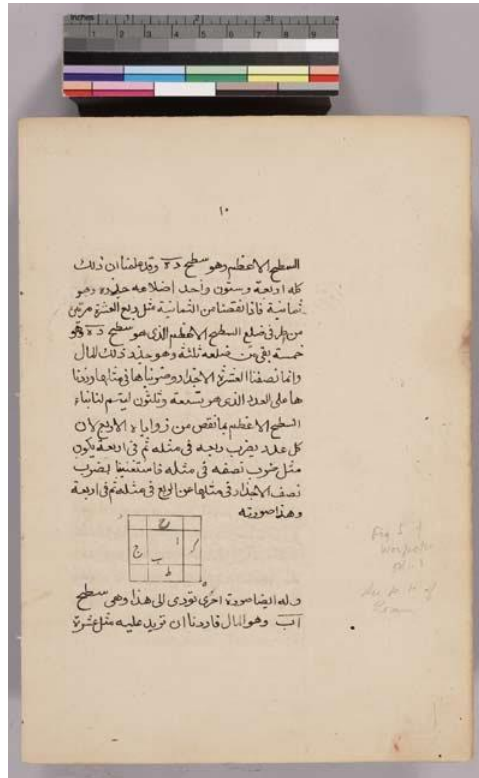 Inches 1 2 3 4
1 2 3 4 5 6 7 8 9
١٠
السطح الاعظم وهو سطح ده وقد علمنا ان ذلك
كله اربعة وستون واحد اضلاعه جذره وهو
ثمانية فاذا نقصنا من الثمانية مثل ربع العشرة مرتين
من طرفى ضلع السطح الاعظم الذى هو سطح ده وهو
خمسة بقى من ضلعه ثلثة وهو جذر ذلك المال
وانما نصفنا العشرة الاجذار وضربناها فى مثلها وزدنا
ها على العدد الذى هو تسعة وثلثون ليتم لنا بناء
السطح الاعظم بما نقص من زواياه الاربع لان
كل عدد يضرب ربعه فى مثله ثم فى اربعة يكون
مثل ضرب نصفه فى مثله فاستغنينا بضرب
نصف الاجذار فى مثلها عن الربع فى مثله ثم فى اربعة
وهذا صورته
ح
ا
ج
ب
ط
ه
وله ايضا صورة اخرى تؤدى الى هذا وهى سطح
اب وهو المال فاردنا ان نزيد عليه مثل عشرة
Fig. 5 of